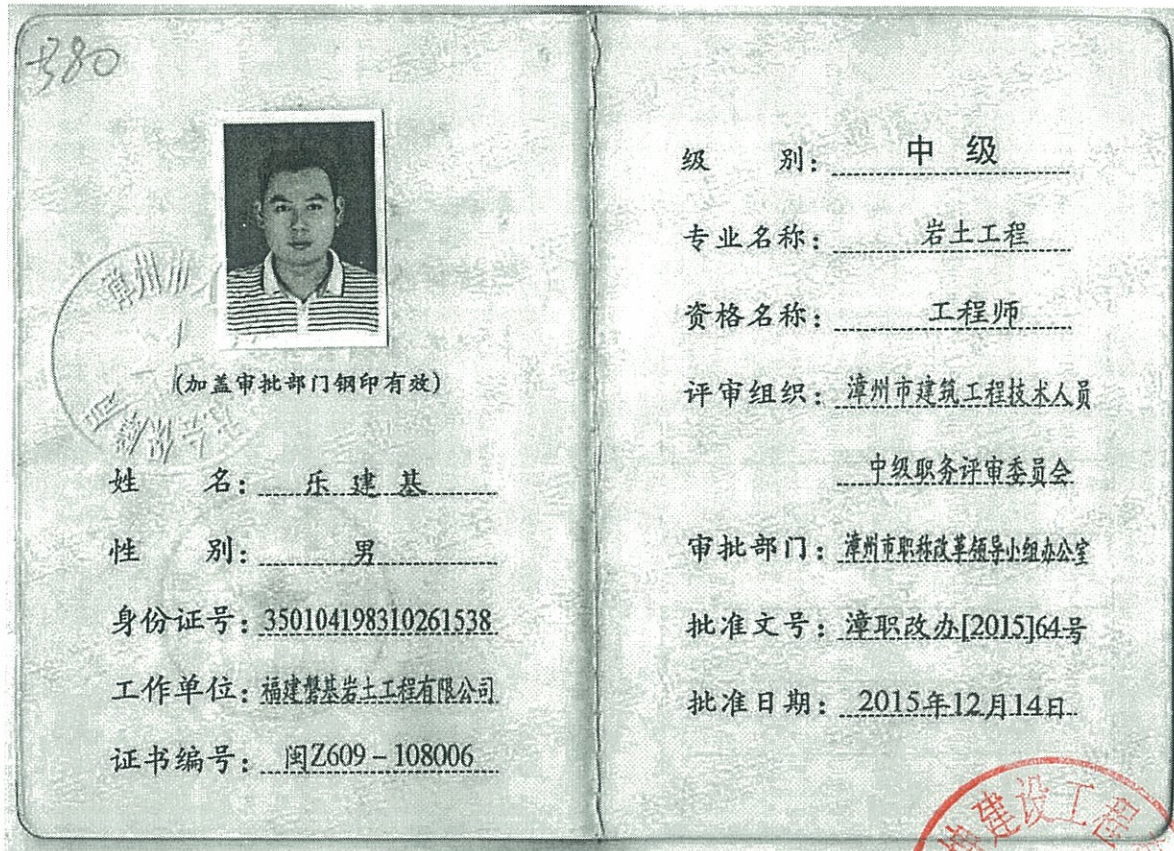 380
漳州市
(加盖审批部门钢印有效)
姓 名: 乐建基
性 别: 男
身份证号: 350104198310261538
工作单位: 福建磐基岩土工程有限公司
证书编号: 闽Z609-108006
级 别: 中 级
专业名称: 岩土工程
资格名称: 工程师
评审组织: 漳州市建筑工程技术人员
中级职务评审委员会
审批部门: 漳州市职称改革领导小组办公室
批准文号: 漳职改办[2015]64号
批准日期: 2015年12月14日
建设工程